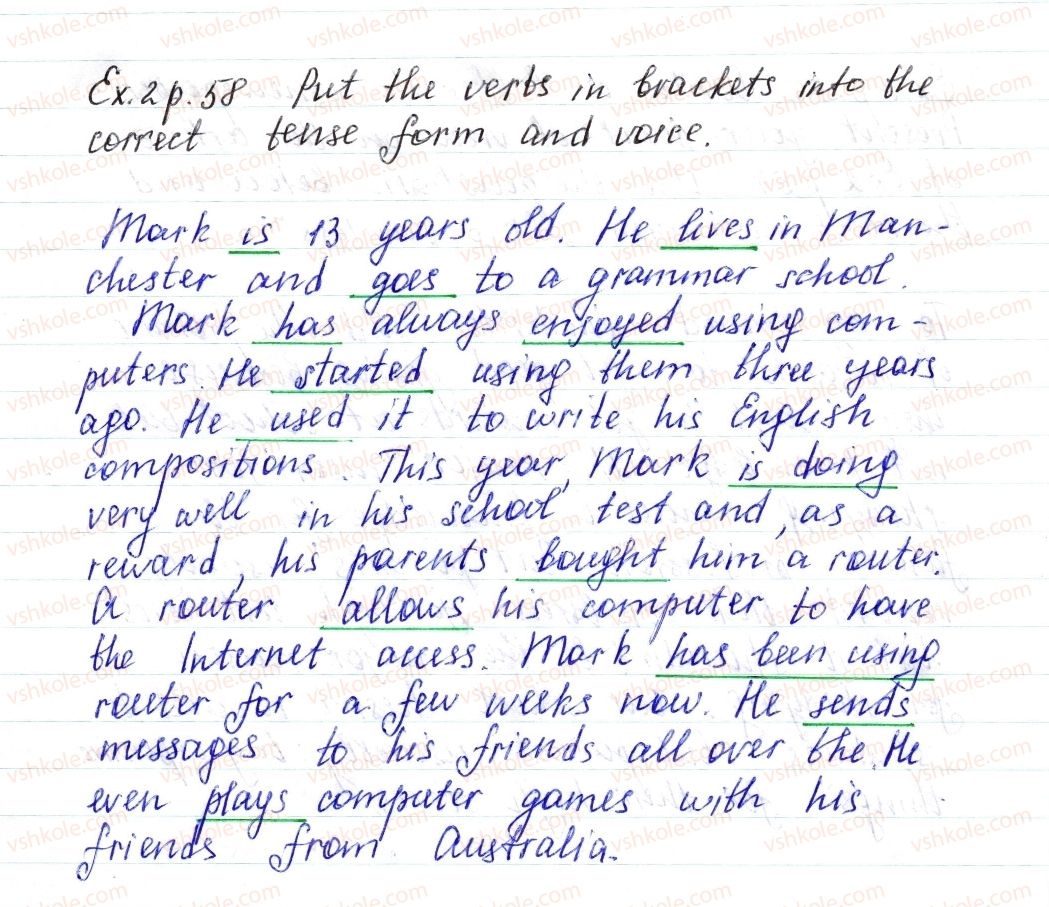 Ex. 2 p. 58 Put the verbs in brackets into the
correct tense form and voice.
Mark is 13 years old. He lives in Man-
chester and goes to a grammar school.
Mark has always enjoyed using com-
puters. He started using them three years
ago. He used it to write his English
compositions. This year, Mark is doing
very well in his school test and, as a
reward, his parents bought him a router.
A router allows his computer to have
the Internet access. Mark has been using
router for a few weeks now. He sends
messages to his friends all over the. He
even plays computer games with his
friends from Australia.
vshkole.com